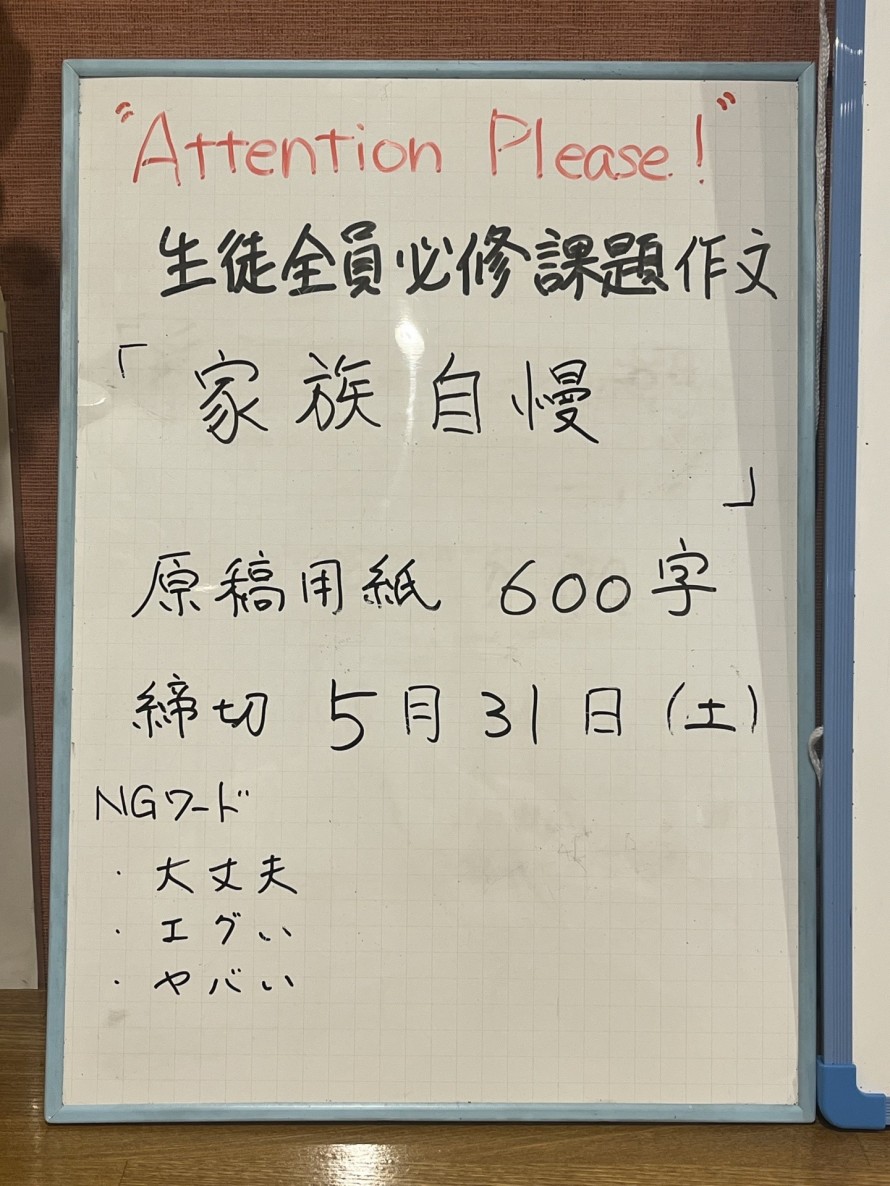 "Attention Please!"
生徒全員必修課題作文
「家族自慢
」
原稿用紙 600字
締切 5月31日(土)
NGワード
・大丈夫
・エグい
・ヤバい